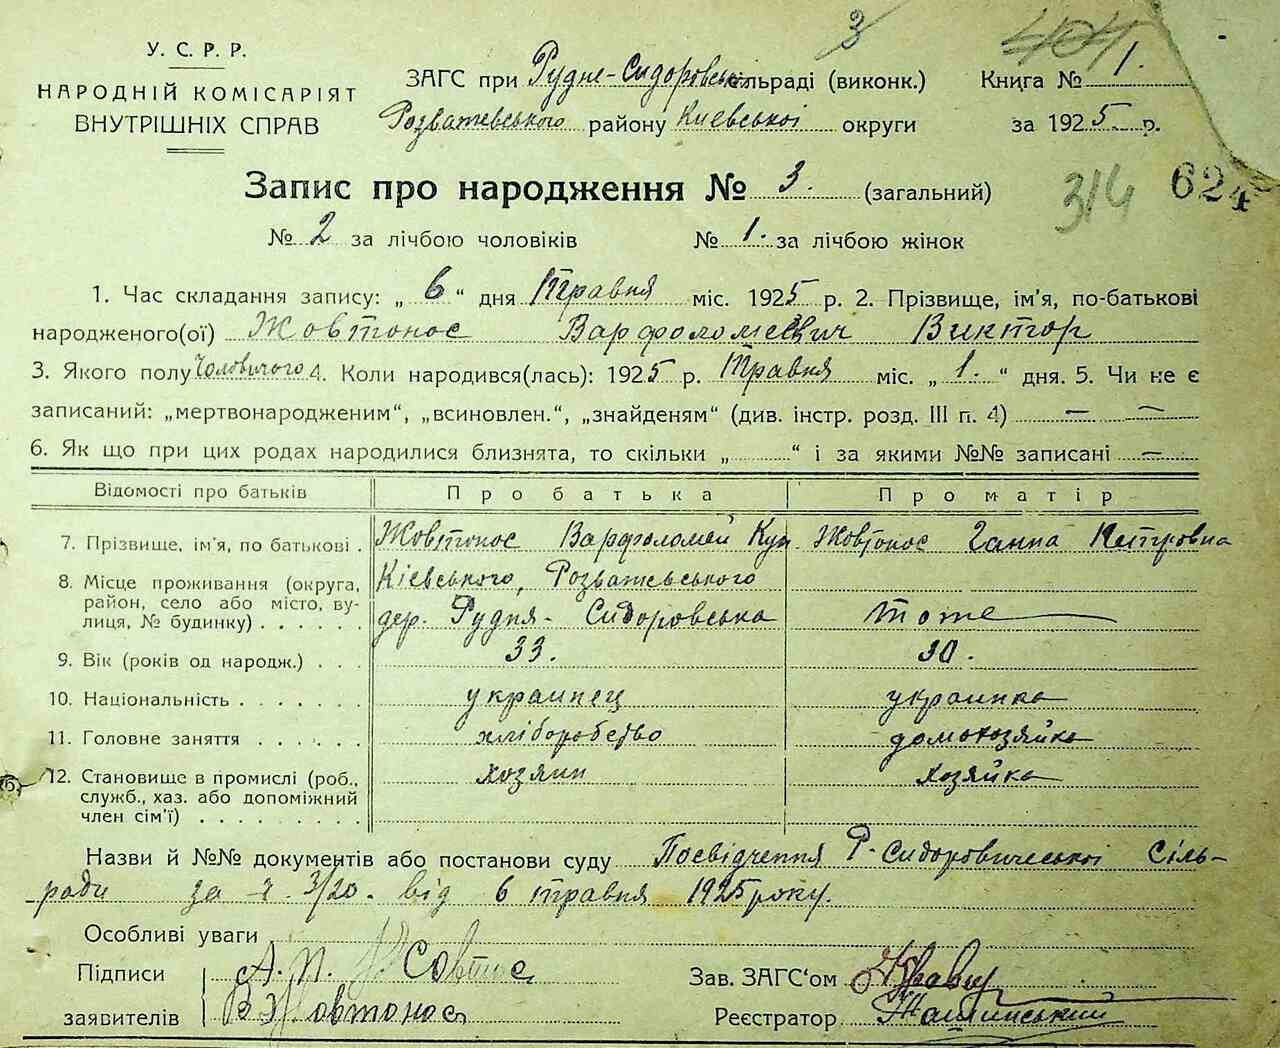 3
У. С. Р. Р.
НАРОДНІЙ КОМІСАРІЯТ
ВНУТРІШНІХ СПРАВ
ЗАГС при Рудне-Сидоровськ сільраді (виконк.)
Розважевського району Киевської округи
Книга № 1.
за 1925 р.
Запис про народження № 3. (загальний)
314 624
№ 2 за лічбою чоловіків № 1. за лічбою жінок
1. Час складання запису: „ 6 “ дня Травня міс. 1925 р. 2. Прізвище, ім'я, по-батькові
народженого(ої) Жовтонос Варфоломеєвич Виктор
3. Якого полу Чоловичого 4. Коли народився(лась): 1925 р. Травня міс. „ 1. “ дня. 5. Чи не є
записаний: „мертвонародженим“, „всиновлен.“, „знайденям“ (див. інстр. розд. III п. 4) — —
6. Як що при цих родах народилися близнята, то скільки „ “ і за якими №№ записані —
Відомості про батьків Про батька Про матір
7. Прізвище, ім'я, по батькові . Жовтонос Варфоломей Жовтонос Ганна Петровна
8. Місце проживання (округа, Кіевського, Розважевського
район, село або місто, ву-
лиця, № будинку) . . . . . . дер. Рудня-Сидоровська тоже
9. Вік (років од народж.) . . . 33. 30.
10. Національність . . . . . . . украинец украинка
11. Головне заняття . . . . . . хліборобство домохозяйка
12. Становище в промислі (роб., хозяин хозяйка
служб., хаз. або допоміжний
член сім'ї) . . . . . . . . .
Назви й №№ документів або постанови суду Посвідчення Р-Сидоровической Сіль-
ради за 3/20. від 6 травня 1925 року.
Особливі уваги
Підписи А. П. Жовтонос Зав. ЗАГС‘ом
заявителів В Жовтонос Реєстратор